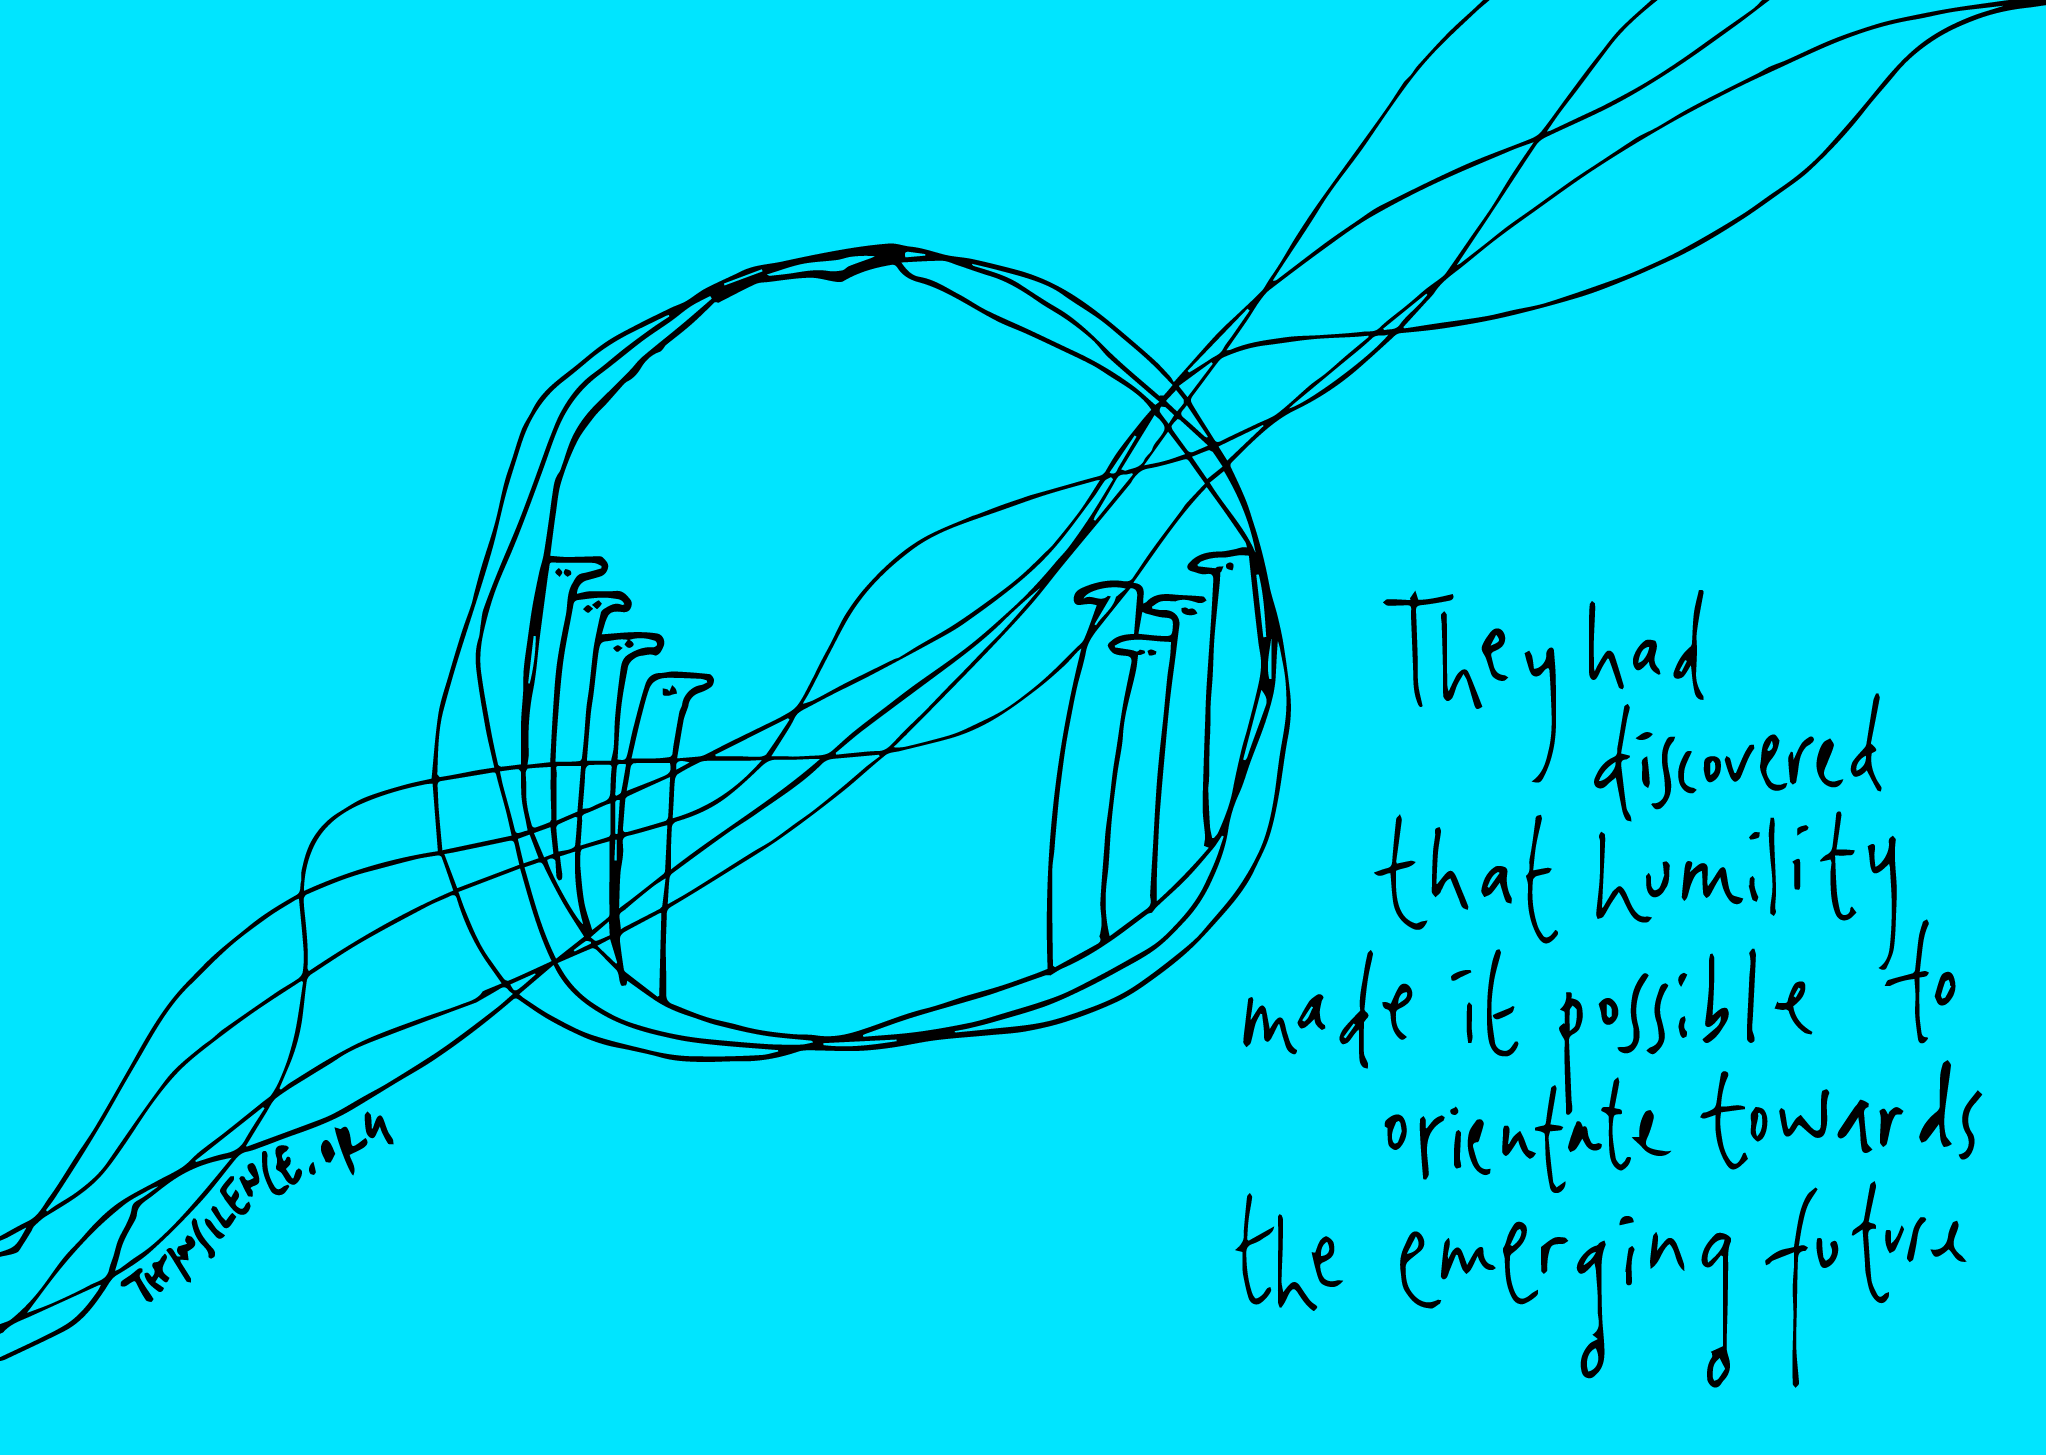 They had
discovered
that humility
made it possible to
orientate towards
the emerging future
THINSILENCE.ORG